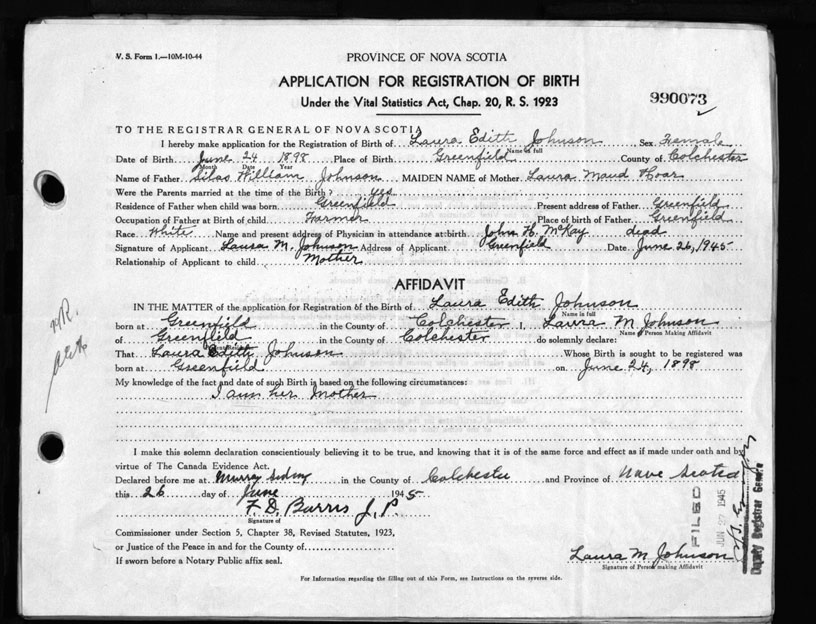 V. S. Form 1.—10M-10-44
PROVINCE OF NOVA SCOTIA
APPLICATION FOR REGISTRATION OF BIRTH
Under the Vital Statistics Act, Chap. 20, R. S. 1923
990073
TO THE REGISTRAR GENERAL OF NOVA SCOTIA
I hereby make application for the Registration of Birth of Laura Edith Johnson Sex Female
Name in full
Date of Birth June 24 1898 Place of Birth Greenfield County of Colchester
Month Date Year
Name of Father Silas William Johnson MAIDEN NAME of Mother Laura Maud Hoar
Were the Parents married at the time of the Birth? yes
Residence of Father when child was born Greenfield Present address of Father Greenfield
Occupation of Father at Birth of child Farmer Place of birth of Father Greenfield
Race White Name and present address of Physician in attendance at birth John H. McKay dead
Signature of Applicant Laura M. Johnson Address of Applicant Greenfield Date June 26, 1945
Relationship of Applicant to child Mother
AFFIDAVIT
IN THE MATTER of the application for Registration of the Birth of Laura Edith Johnson
Name in full
born at Greenfield in the County of Colchester I, Laura M Johnson
Name of Person Making Affidavit
of Greenfield in the County of Colchester do solemnly declare:
That Laura Edith Johnson Whose Birth is sought to be registered was
born at Greenfield on June 24, 1898
My knowledge of the fact and date of such Birth is based on the following circumstances:
I am her Mother
I make this solemn declaration conscientiously believing it to be true, and knowing that it is of the same force and effect as if made under oath and by
virtue of The Canada Evidence Act.
Declared before me at Murray Siding in the County of Colchester and Province of Nova Scotia
this 26 day of June 1945
F. D. Burris J. P.
Signature of
Commissioner under Section 5, Chapter 38, Revised Statutes, 1923,
or Justice of the Peace in and for the County of
If sworn before a Notary Public affix seal.
Laura M Johnson
Signature of Person making Affidavit
FILED
JUN 1945
Deputy Registrar General
For Information regarding the filling out of this Form, see Instructions on the reverse side.